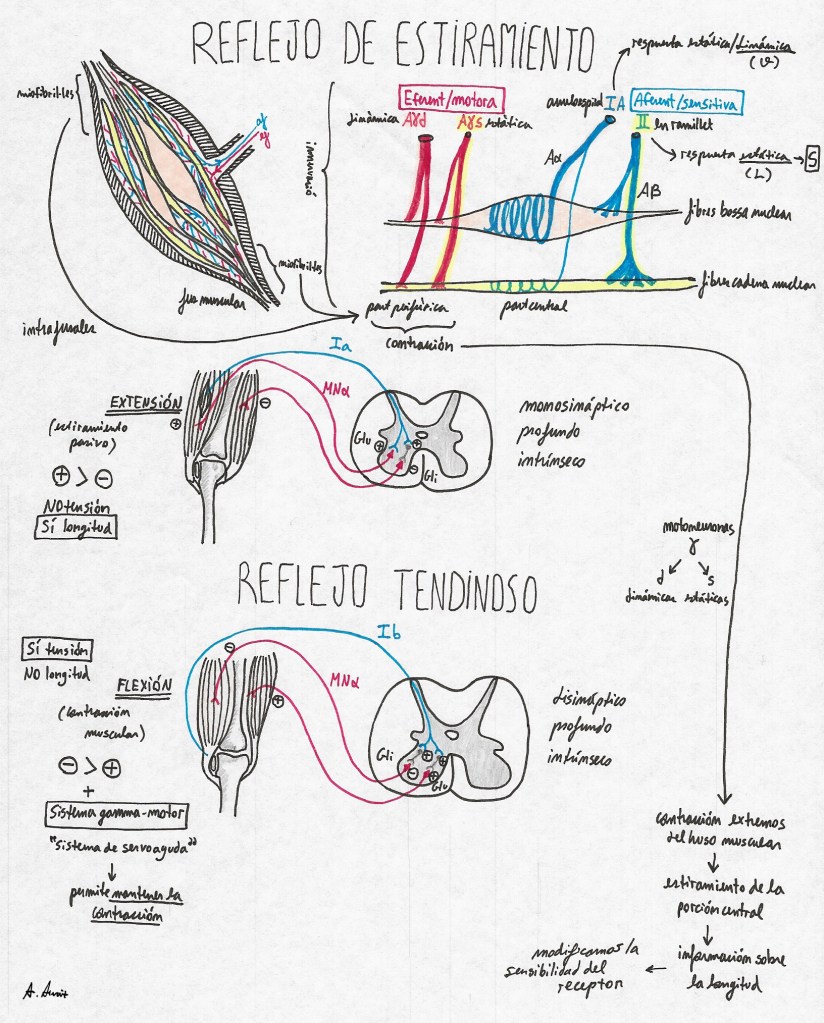 REFLEJO DE ESTIRAMIENTO
respuesta estática/dinámica
(v)
miofibril·les
γ
innervació
Eferent/motora
dinàmica Aγd
Aγs estàtica
anuloespiral IA
Aferent/sensitiva
II en ramillet
respuesta estática → S
(L)
Aα
Aβ
fibres bossa nuclear
fibres cadena nuclear
miofibril·les
fus muscular
intrafusales
part perifèrica
part central
contracción
Ia
MNα
EXTENSIÓN
(estiramiento
pasivo)
+ > -
NO tensión
Sí longitud
+
-
Glu
+
+
-
Gli
monosináptico
profundo
intrínseco
motoneuronas
γ
d s
dinámicas estáticas
REFLEJO TENDINOSO
Ib
MNα
Sí tensión
NO longitud
FLEXIÓN
(contracción
muscular)
- > +
+
Sistema gamma-motor
"sistema de servoayuda"
permite mantener la
contracción
-
+
Gli
+
+
-
+
Glu
disináptico
profundo
intrínseco
contracción extremos
del huso muscular
estiramiento de la
porción central
información sobre
la longitud
modificamos la
sensibilidad del
receptor